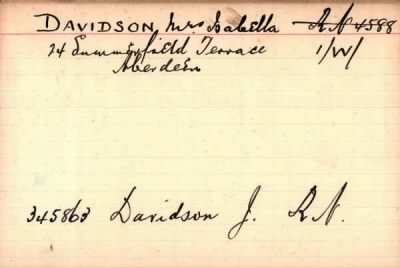 DAVIDSON, Mrs Isabella R.N 4588
24 Summerfield Terrace 1/W/
Aberdeen
345863 Davidson J. R.N.